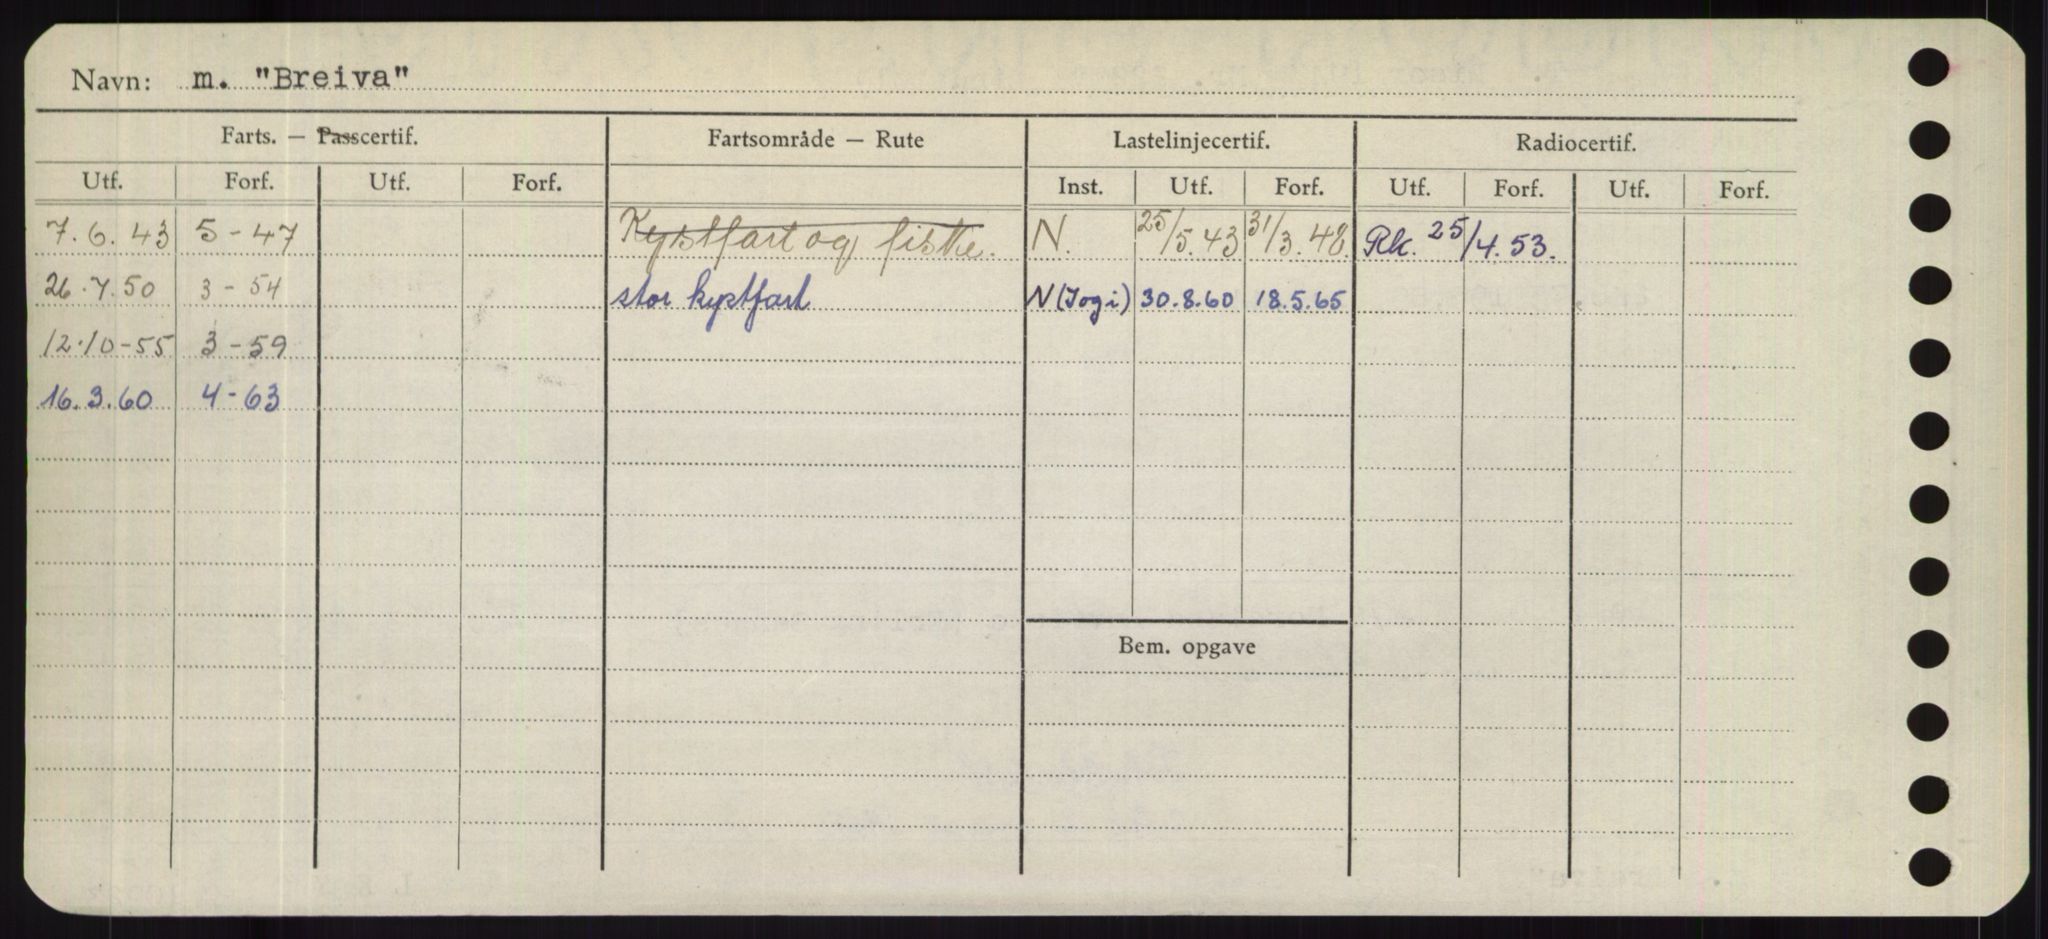 Navn: m. "Breiva"
Farts. — Passcertif. Fartsområde — Rute Lastelinjecertif. Radiocertif.
Utf. Forf. Utf. Forf. Inst. Utf. Forf. Utf. Forf. Utf. Forf.
7.6.43 5-47 Kystfart og fiske. N. 25/5.43 31/3.48 Rk. 25/4.53.
26.7.50 3-54 stor kystfart N(I og i) 30.8.60 18.5.65
12.10-55 3-59
16.3.60 4-63
Bem. opgave